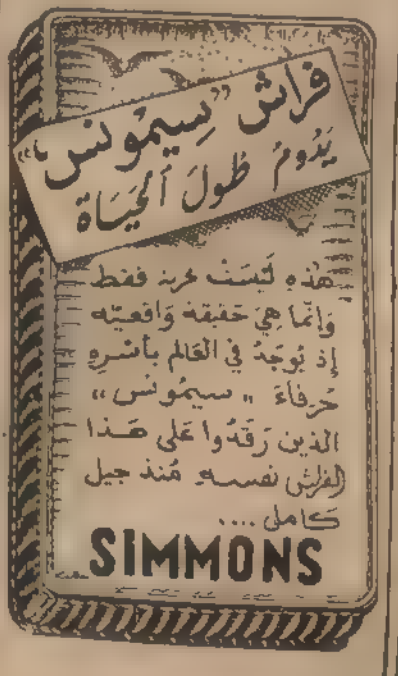 فراش "سِيمُونس"
يَدُومُ طُولَ ٱلحَيَاة
هٰذِهِ لَيْسَتْ فقط
وَإنّما هِيَ حَقيقة وَاقعيّه
إذ يُوجَدُ في العَالم بأسْرِهِ
حُرفاءَ "سيمُونس"
الذين رَقَدُوا عَلى هَذا
الفراش نفسه مُنذ جيل
كَامل ....
SIMMONS